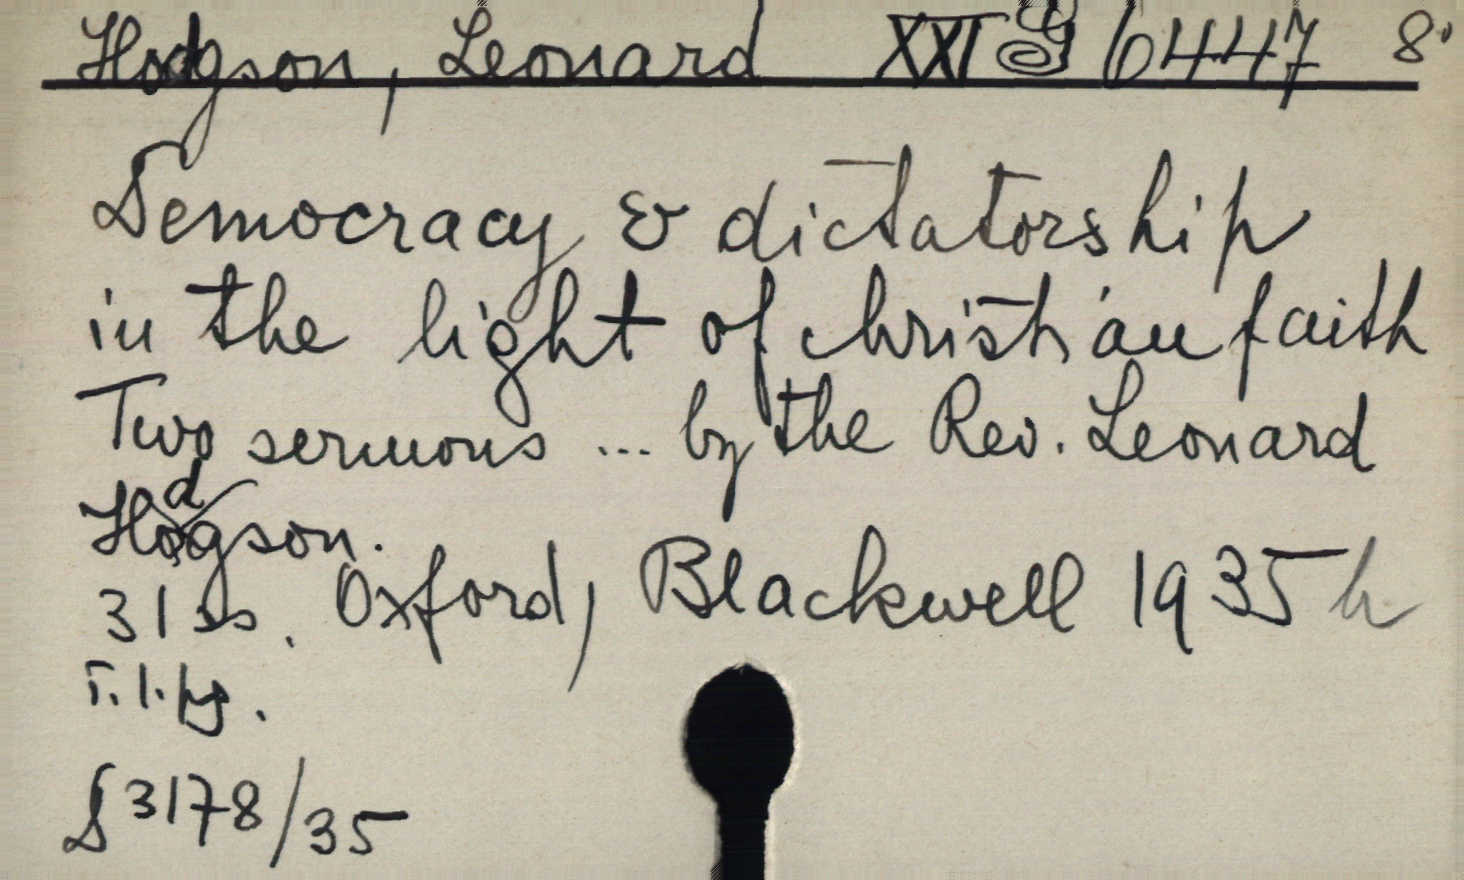 Hodgson, Leonard XXI G 6447 8°
Democracy & dictatorship
in the light of christian faith
Two sermons ... by the Rev. Leonard
Hodgson.
31 ss. Oxford, Blackwell 1935 h
T. l. pg.
S 3178/35